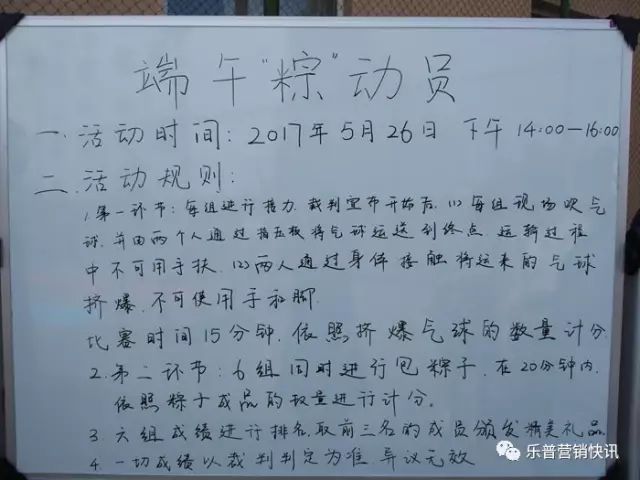 端午“粽”动员
一.活动时间:2017年5月26日 下午14:00—16:00
二.活动规则:
1.第一环节:每组进行接力,裁判宣布开始后,(1)每组现场吹气
球,并由两个人通过指压板将气球运送到终点,运输过程
中不可用手扶.(2)两人通过身体接触将运来的气球
挤爆,不可使用手和脚.
比赛时间15分钟.依照挤爆气球的数量计分.
2.第二环节:6组同时进行包粽子,在20分钟内,
依照粽子成品的数量进行计分.
3.六组成绩进行排名,取前三名的成员颁发精美礼品.
4.一切成绩以裁判判定为准,异议无效
乐普营销快讯